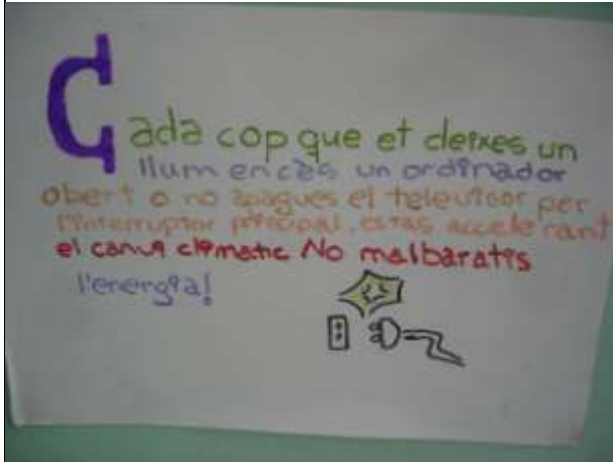 Cada cop que et deixes un
llum encès un ordinador
obert o no apagues el televisor per
l'interruptor principal, estas accelerant
el canvi climatic No malbaratis
l'energia!